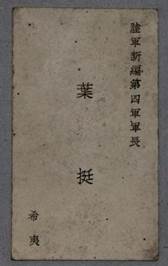 陸軍新編第四軍軍長
葉挺
希夷